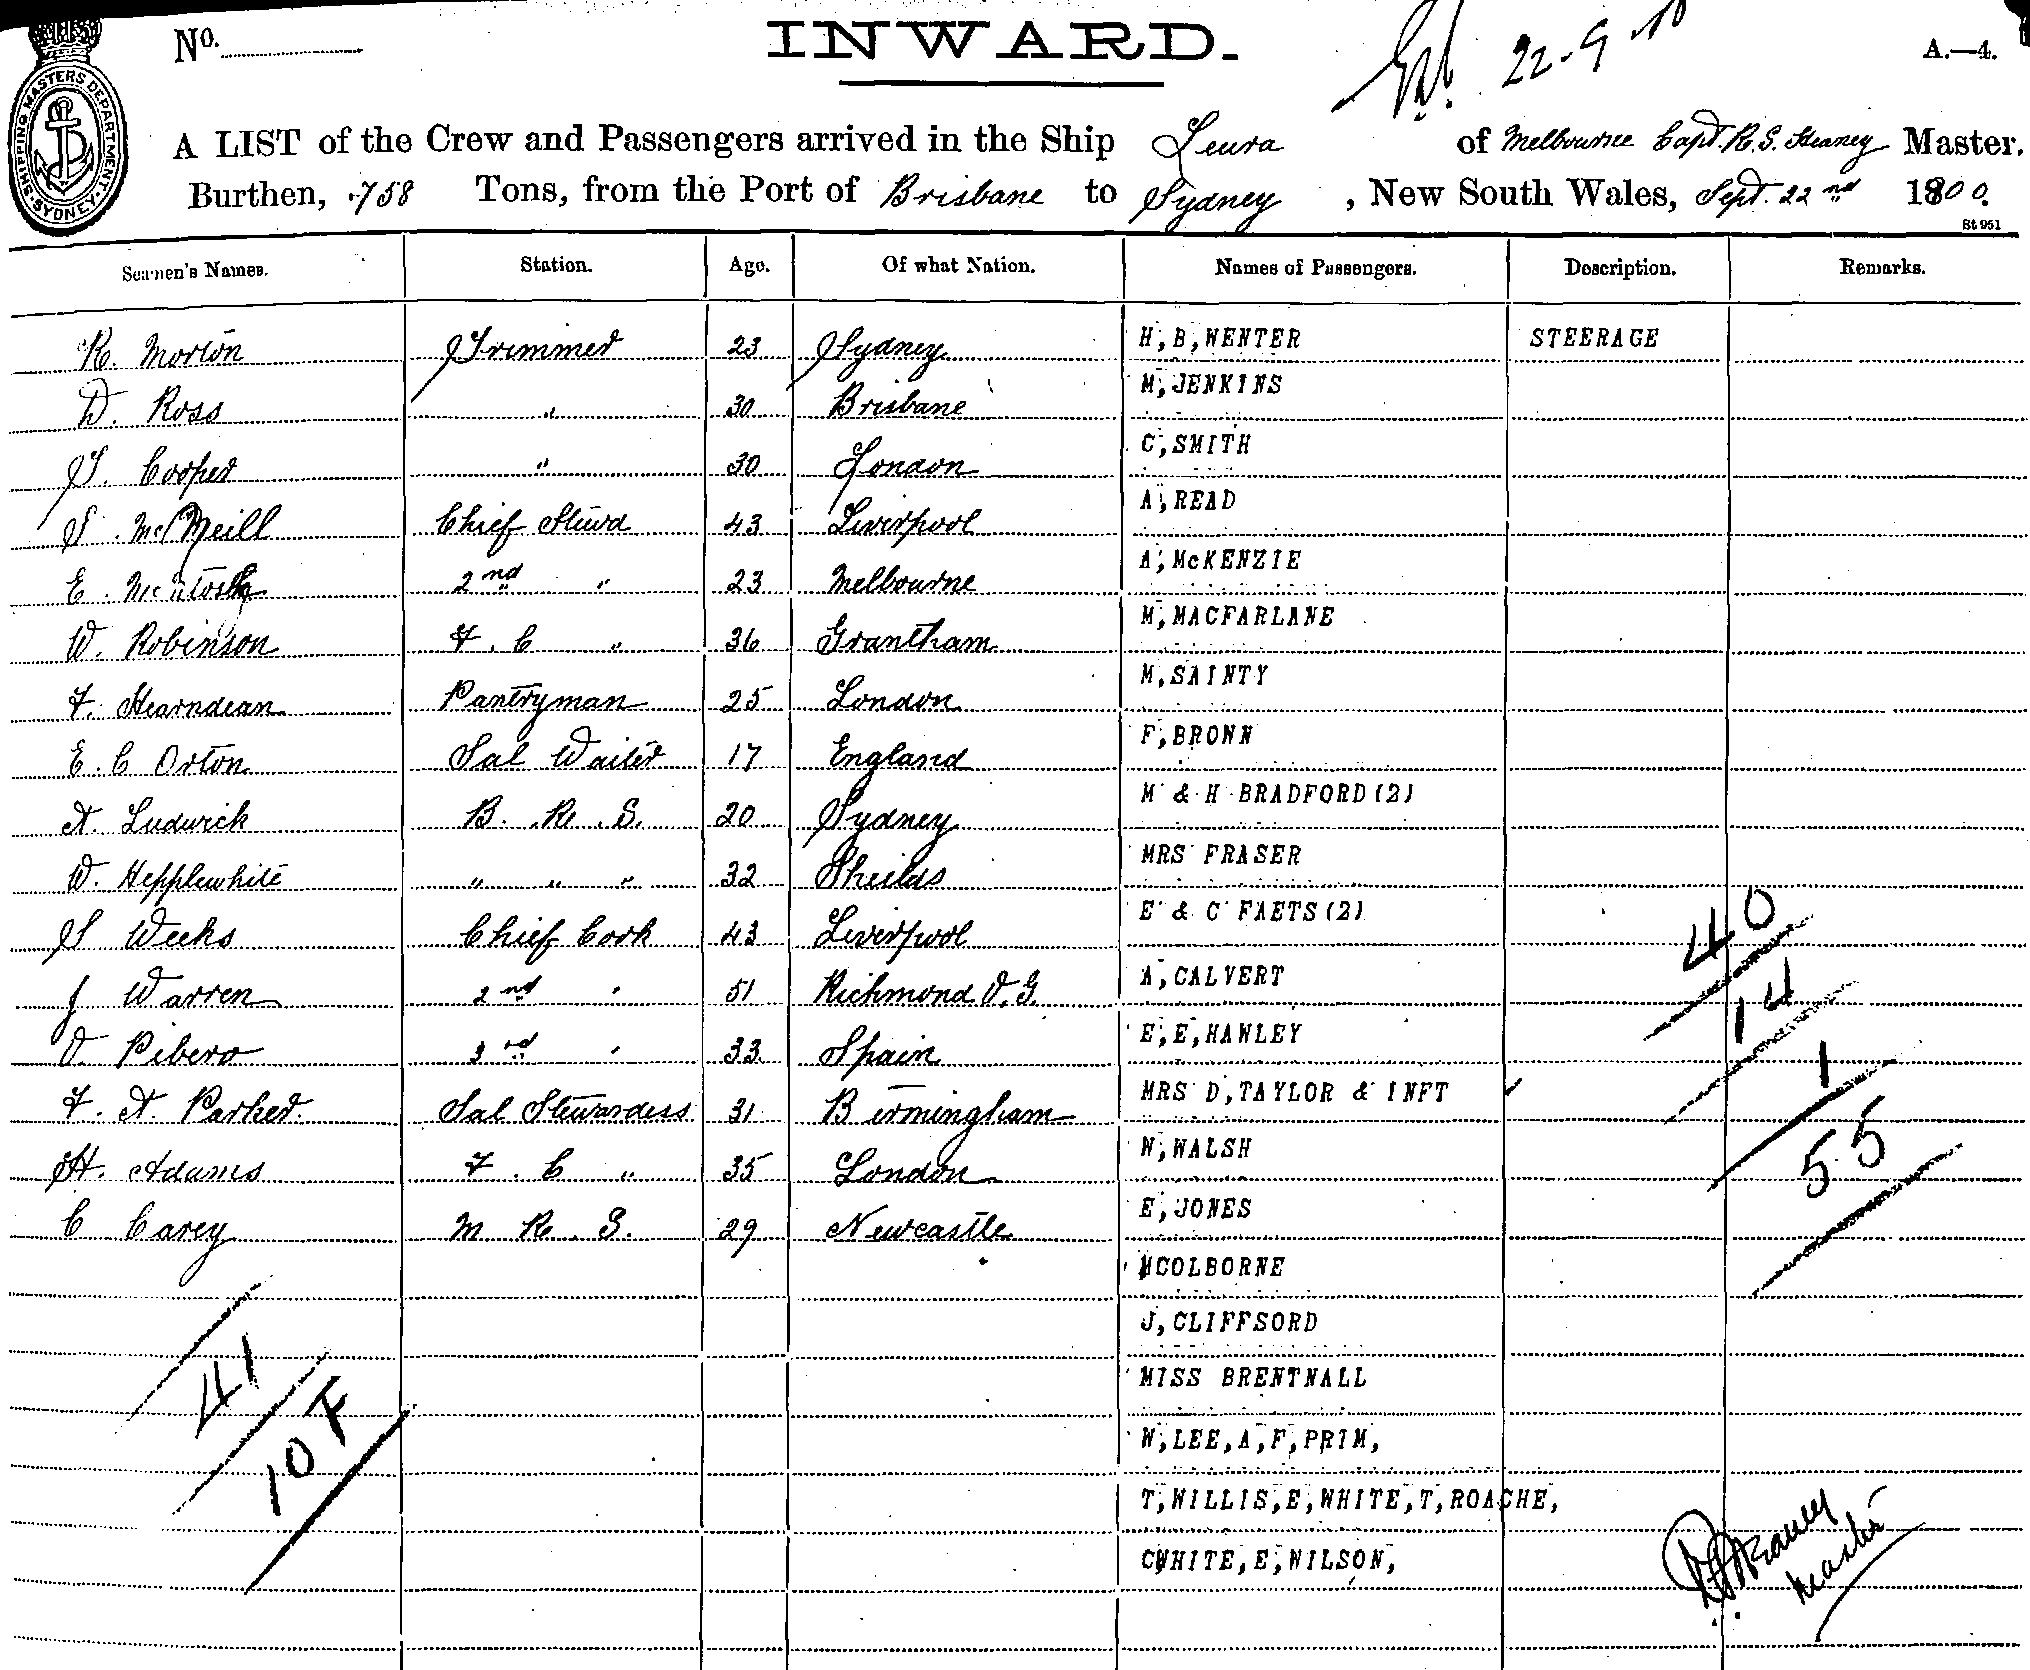 No.
INWARD.
22-9-10
A.—4.
SHIPPING MASTERS DEPARTMENT. SYDNEY.
A LIST of the Crew and Passengers arrived in the Ship Leura of Melbourne Capt. R. S. Heaney Master.
Burthen, 758 Tons, from the Port of Brisbane to Sydney, New South Wales, Sept. 22nd 1900.
St 951
Seamen's Names. Station. Age. Of what Nation. Names of Passengers. Description. Remarks.
R. Morton Trimmer 23 Sydney H,B,WENTER STEERAGE
D. Ross " 30 Brisbane M,JENKINS
T. Cooper " 30 London C,SMITH
S. McNeill Chief Stewd 43 Liverpool A,READ
E. McIntosh 2nd " 23 Melbourne A,McKENZIE
W. Robinson F. C " 36 Grantham M,MACFARLANE
F. Hearndean Pantryman 25 London M,SAINTY
E. C Orton Sal Waiter 17 England F,BRONN
A. Ludwick B. R. S. 20 Sydney M & H BRADFORD(2)
W. Hepplewhite " " " 32 Sheilds MRS FRASER
S Weeks Chief Cook 43 Liverpool E & C FAETS(2)
J Warren 2nd " 51 Richmond V.G. A,CALVERT
V Pibero 3rd " 33 Spain E,E,HAWLEY
F. A. Parker. Sal Stewardess 31 Birmingham MRS D,TAYLOR & INFT
H. Adams F. C " 35 London W,WALSH
C Carey M R. S. 29 Newcastle E,JONES
WCOLBORNE
J,CLIFFSORD
MISS BRENTNALL
W,LEE,A,F,PRIM,
T,WILLIS,E,WHITE,T,ROACHE,
CWHITE,E,WILSON,
40
14
1
55
41
10 F
R S Heaney
Master